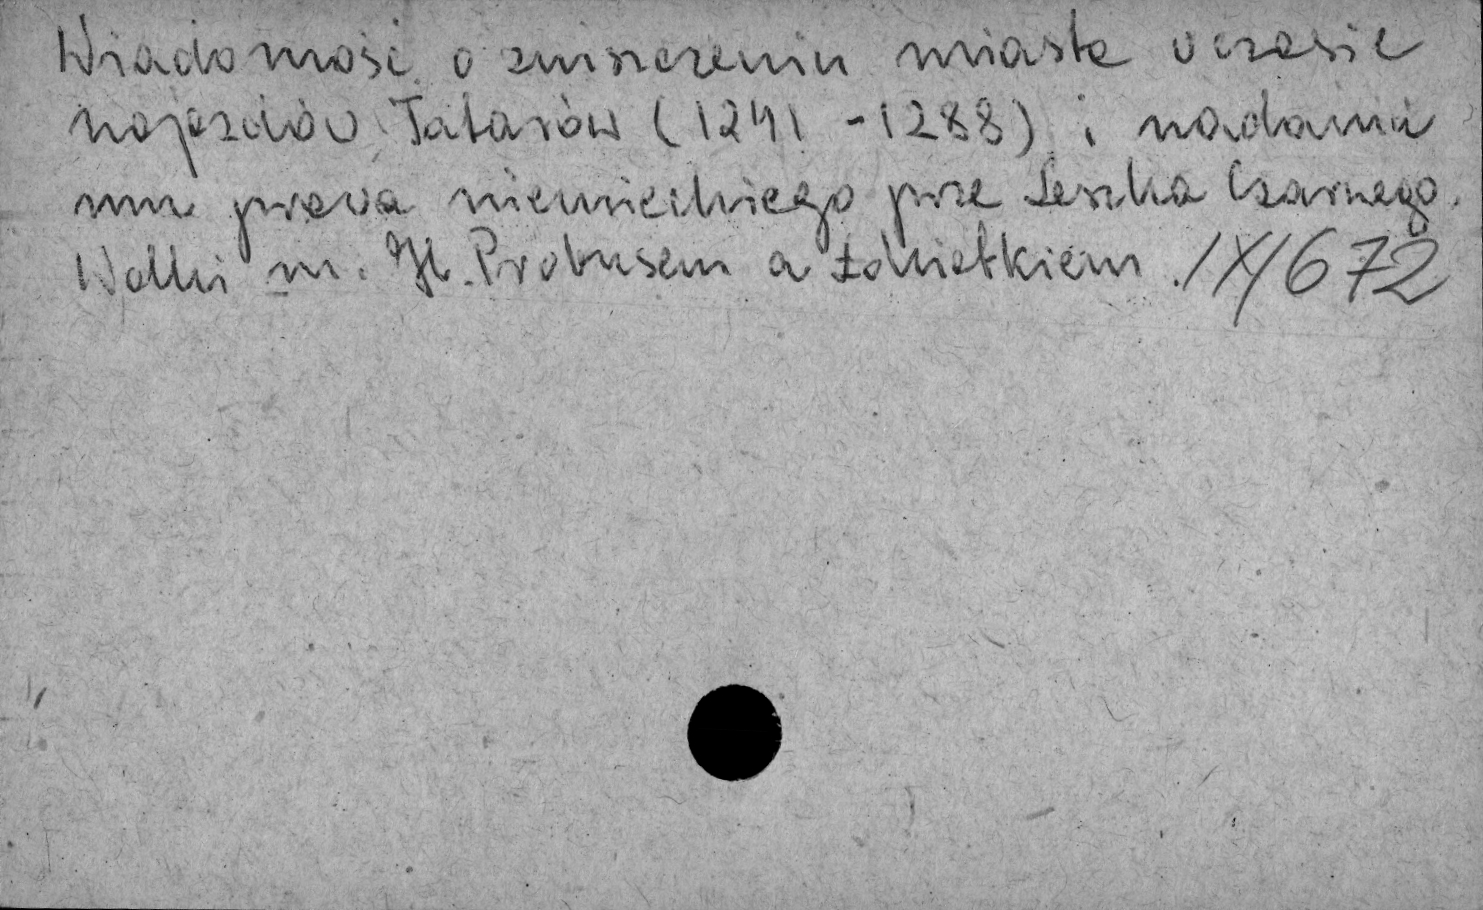 Wiadomość o zniszczeniu miasta w czasie
najazdów Tatarów (1241 - 1288) i nadaniu
mu prawa niemieckiego prze Leszka Czarnego.
Walki m. H. Probusem a Łokietkiem. IX/672